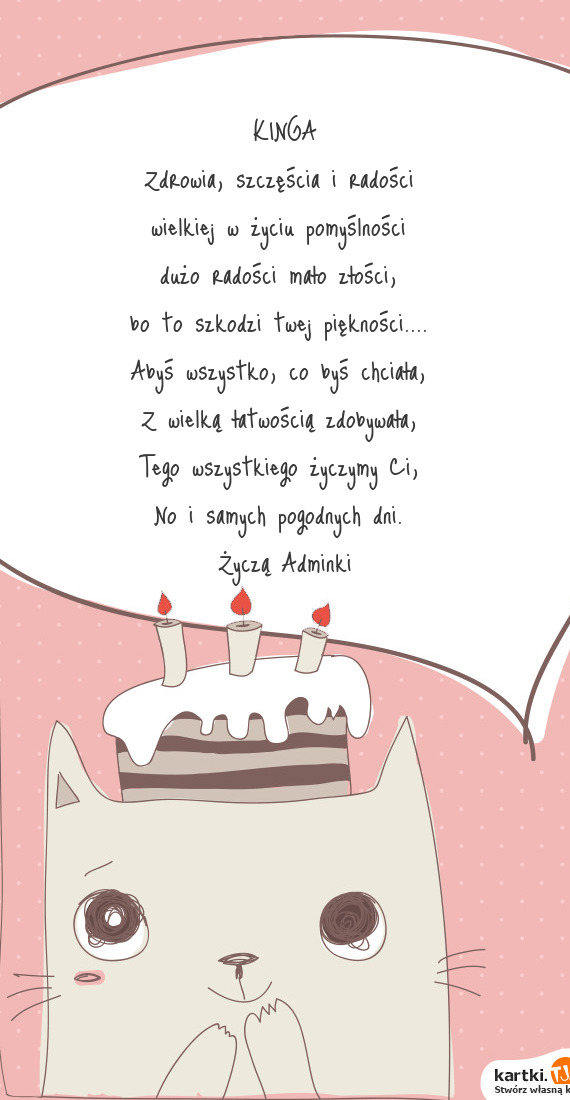 KINGA
Zdrowia, szczęścia i radości
wielkiej w życiu pomyślności
dużo radości mało złości,
bo to szkodzi twej piękności....
Abyś wszystko, co byś chciała,
Z wielką łatwością zdobywała,
Tego wszystkiego życzymy Ci,
No i samych pogodnych dni.
Życzą Adminki
kartki.TJ
Stwórz własną k